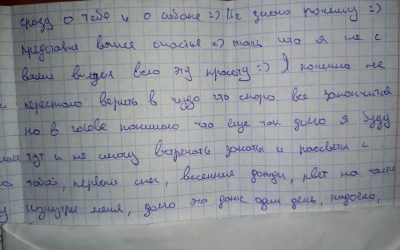 сразу о тебе и о собаке =) Не знаю почему =)
представил ваше счастье =) жаль что я не с
вами видел всю эту красоту =) Я конечно не
перестаю верить в чудо что скоро все закончится
но в голове понимаю что еще так долго я буду
тут и не смогу встречать закаты и рассветы с
тобой, первый снег, весенние дожди, рвет на части
изнутри меня, даже это даже один день, надоело,